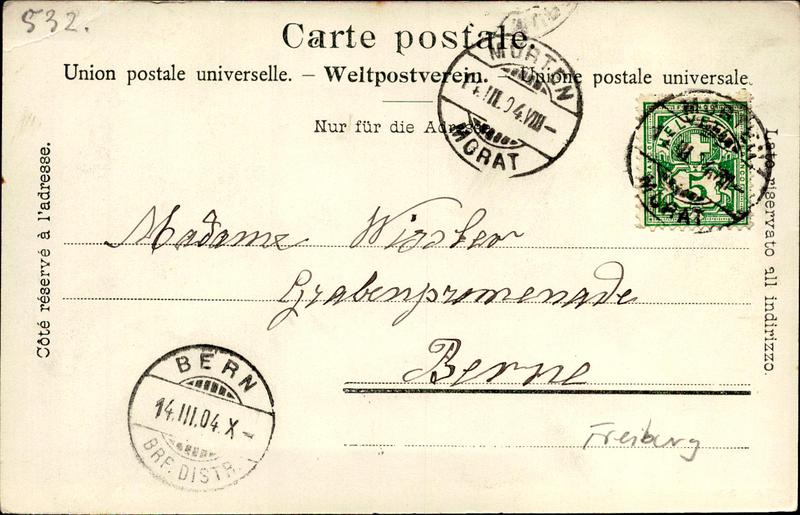 532.
Carte postale.
Union postale universelle. – Weltpostverein. – Unione postale universale.
Nur für die Adresse
Côté réservé à l'adresse.
Lato riservato all indirizzo.
MURTEN
14.III.04.VIII–
MORAT
HELVETIA
5
MORAT
Madame
Grabenpromenade
Berne
BERN
14.III.04.X–
BRF. DISTR.
Freiburg